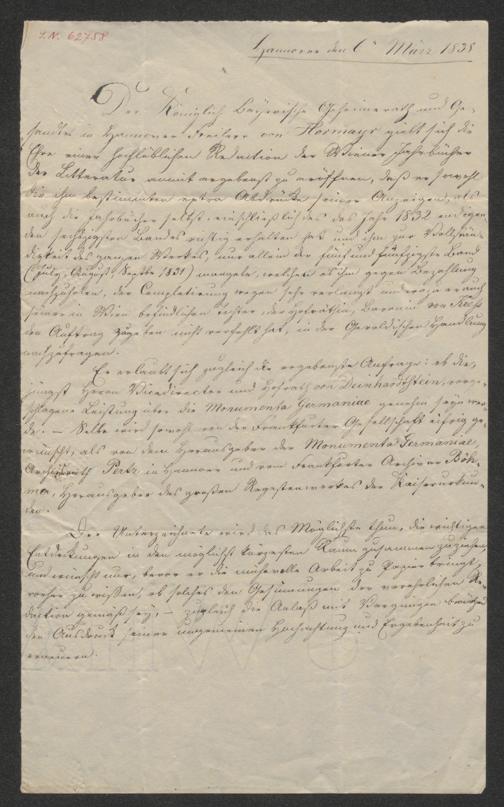 I.N. 62758
Hannover den 6 März 1838
Der Königlich Bayerische Geheimerath und Ge-
sandte in Hannover Freiherr von Hormayr giebt sich die
Ehre einer hochlöblichen Redaction der Wiener Jahrbücher
der Litteratur anmit ergebenst zu eröffnen, daß er sowohl
die ihm bestimmten extra Abdrücke seiner Anzeigen, als
auch die Jahrbücher selbst, einschließlich des das Jahr 1832 endigen
den sechzigsten Bandes richtig erhalten hat und ihm zur Vollstän-
digkeit des ganzen Werkes, nur allein der fünf und fünfzigste Band
(July, August, Septbr 1831) mangle, welchen er ihm gegen Bezahlung
nachzuholen, der Completirung wegen sehr verlangt und er auch
seiner in Wien befindlichen Tochter, der Hofräthin, Baronin von
den Auftrag zugeben nicht verfehlt hat, in der Geroldischen Handlung
nachzufragen.
Er erlaubt sich zugleich die ergebenste Anfrage: ob die,
jüngst Herrn Vicedirector und Hofrath von Deinhardstein, vorge-
schlagene Leistung über die Monumenta Germaniae genehm seyn wer-
de? — Selbe wird sowohl von der Frankfurter Gesellschaft eifrig ge-
wünscht, als von dem Herausgeber der Monumenta Germaniae,
Archivrath Pertz in Hannover und vom Frankfurter Archivar Böh-
mer, Herausgeber des großen Regestenwerkes der Kaiserurkun-
den.
Der Unterzeichnete wird das Möglichste thun, die wichtigen
Entdeckungen in den möglichst kürzesten Raum zusammen zu ziehen,
und wünscht nur, bevor er die mühevolle Arbeit zu Papier bringt,
vorher zu wissen, ob solches den Gesinnungen der verehrlichen Re-
daction gemäß sey, — zugleich die Anlaß mit Vergnügen
den Ausdruck seiner ungemeinen Hochachtung und Ergebenheit zu
erneuern.